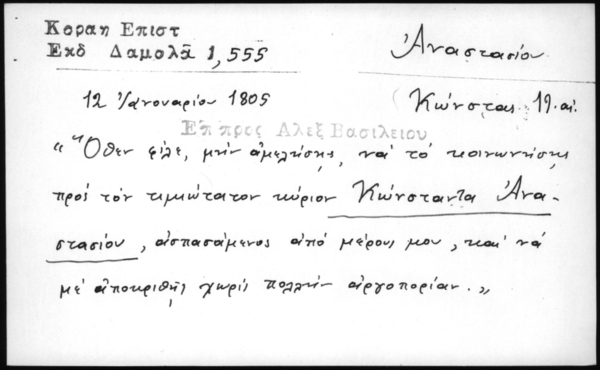 Κοραη Επιστ
Εκδ Δαμολᾶ 1,555
Ἀναστασίου
12 Ἰανουαρίου 1805
Κώνστας 19. αἰ.
Επ προς Αλεξ Βασιλειου
« Ὅθεν φίλε, μὴν ἀμελήσῃς, νὰ τὸ κοινωνήσῃς
πρὸς τὸν τιμιώτατον κύριον Κώνσταντα Ἀνα-
στασίου, ἀσπασάμενος ἀπὸ μέρους μου, καὶ νὰ
μὲ ἀποκριθῇς χωρὶς πολλὴν ἀργοπορίαν. »